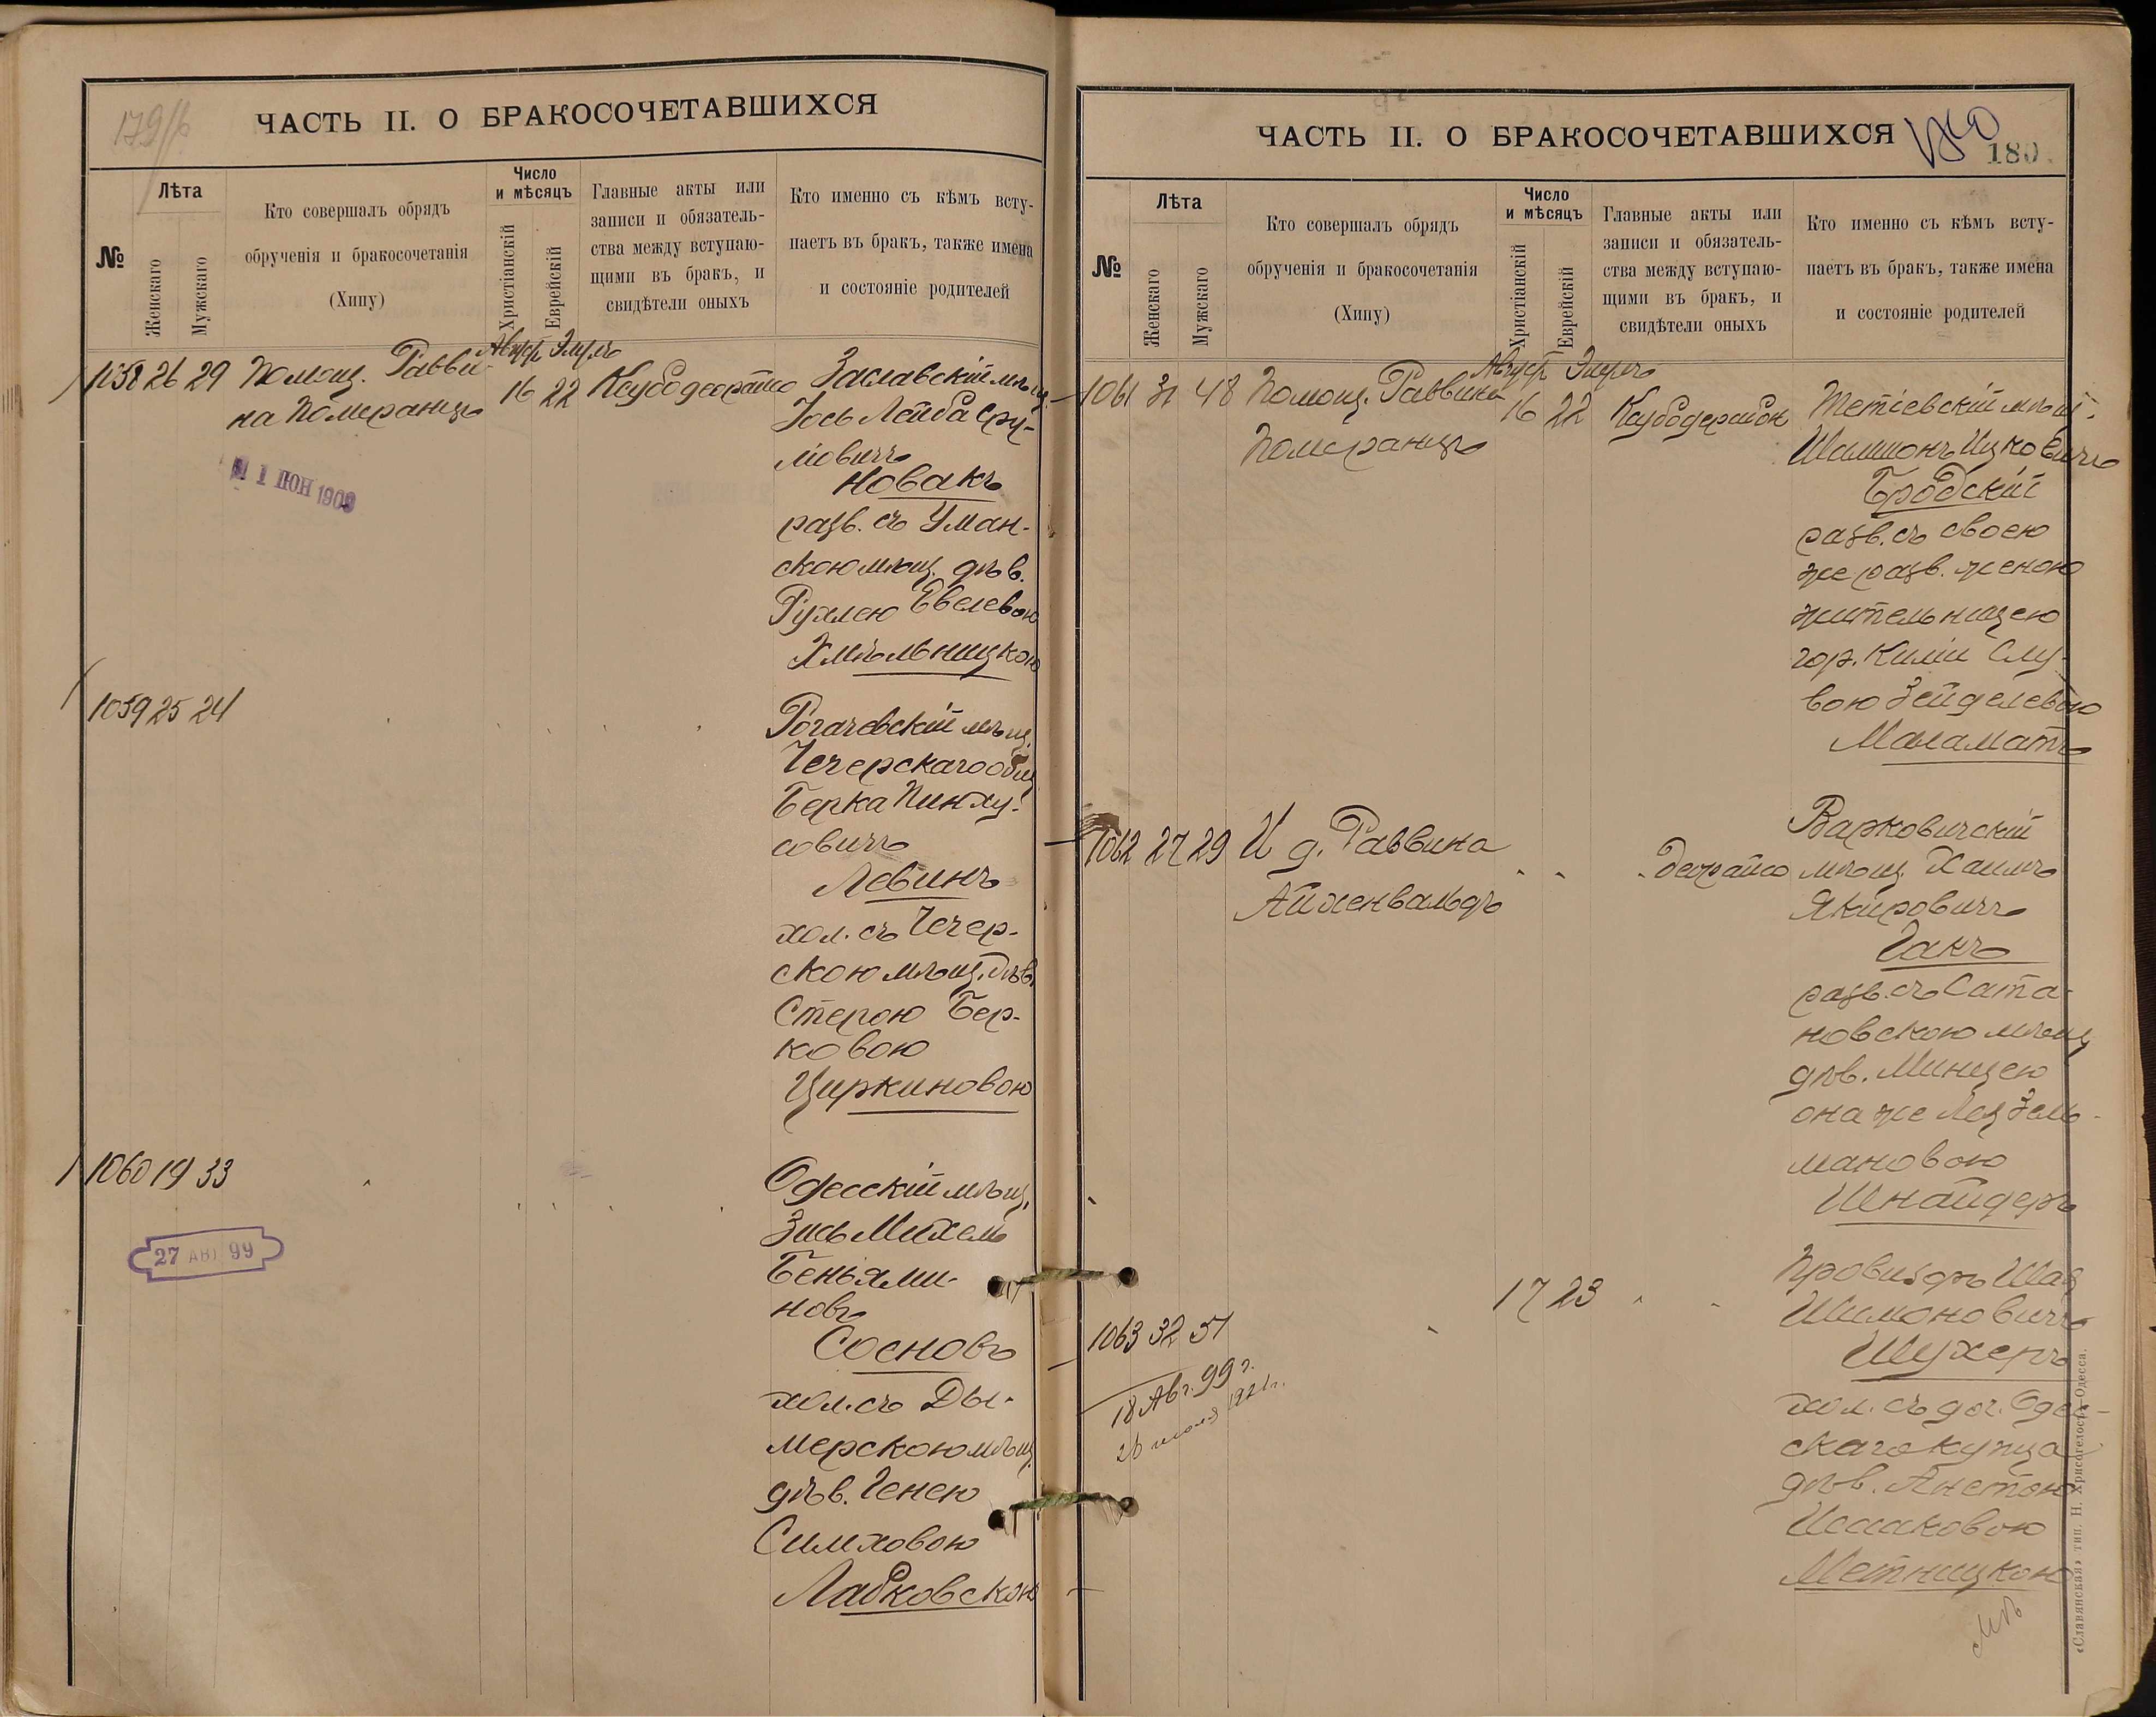 179/б
ЧАСТЬ II. О БРАКОСОЧЕТАВШИХСЯ
№
Лѣта
Женскаго
Мужскаго
Кто совершалъ обрядъ
обрученія и бракосочетанія
(Хипу)
Число
и мѣсяцъ
Христіанскій
Еврейскій
Главные акты или
записи и обязатель-
ства между вступаю-
щими въ бракъ, и
свидѣтели оныхъ
Кто именно съ кѣмъ всту-
паетъ въ бракъ, также имена
и состояніе родителей
1058 26 29 Помощ. Равви-
на Померанцъ
Август Элулъ
16 22
Заславскій мѣщ.
Іось Лейба Сру-
ліовичъ
Новакъ
разв. съ Уман-
скою мѣщ. дѣв.
Рухлею Евелевою
Хмѣльницкою
1 ІЮН 1909
1059 25 24
Рогачевскій мѣщ.
Чечерскаго общ
Берка Пинху-
совичъ
Левинъ
хол. съ Чечер-
скою мѣщ. дѣв.
Стерою Бер-
ковою
Циркиновою
1060 19 33
27 АВГ 99
Одесскій мѣщ.
Зись Михель
Беньями-
новъ
Сосновъ
хол. съ Ды-
мерскою мѣщ.
дѣв. Генею
Симховою
Ладковскою
ЧАСТЬ II. О БРАКОСОЧЕТАВШИХСЯ
180
180
№
Лѣта
Женскаго
Мужскаго
Кто совершалъ обрядъ
обрученія и бракосочетанія
(Хипу)
Число
и мѣсяцъ
Христіанскій
Еврейскій
Главные акты или
записи и обязатель-
ства между вступаю-
щими въ бракъ, и
свидѣтели оныхъ
Кто именно съ кѣмъ всту-
паетъ въ бракъ, также имена
и состояніе родителей
1061 31 48 Помощ. Раввина
Померанцъ
Август Элулъ
16 22
Тетіевскій мѣщ.
Шлиомъ Ицковичъ
Бродскій
разв. съ своею
же разв. женою
жительницею
гор. Киліи Слу-
вою Зейделевою
Маламатъ
1062 27 29 И д. Раввина
Айхенвальдъ
Варковичскій
мѣщ. Хаимъ
Якировичъ
Гакъ
разв. съ Сата-
новскою мѣщ
дѣв. Минцею
она же Лея Зель-
мановою
Шнайдеръ
1063 32 51
17 23
18 Авг. 99 г.
28 июля 1921 г.
Провизоръ Шая
Шимоновичъ
Шухеръ
хол. съ доч. Одес-
скаго купца
дѣв. Анетою
Исааковою
Метницкою
«Славянская» тип. Н. Хрисогелосъ, Одесса.